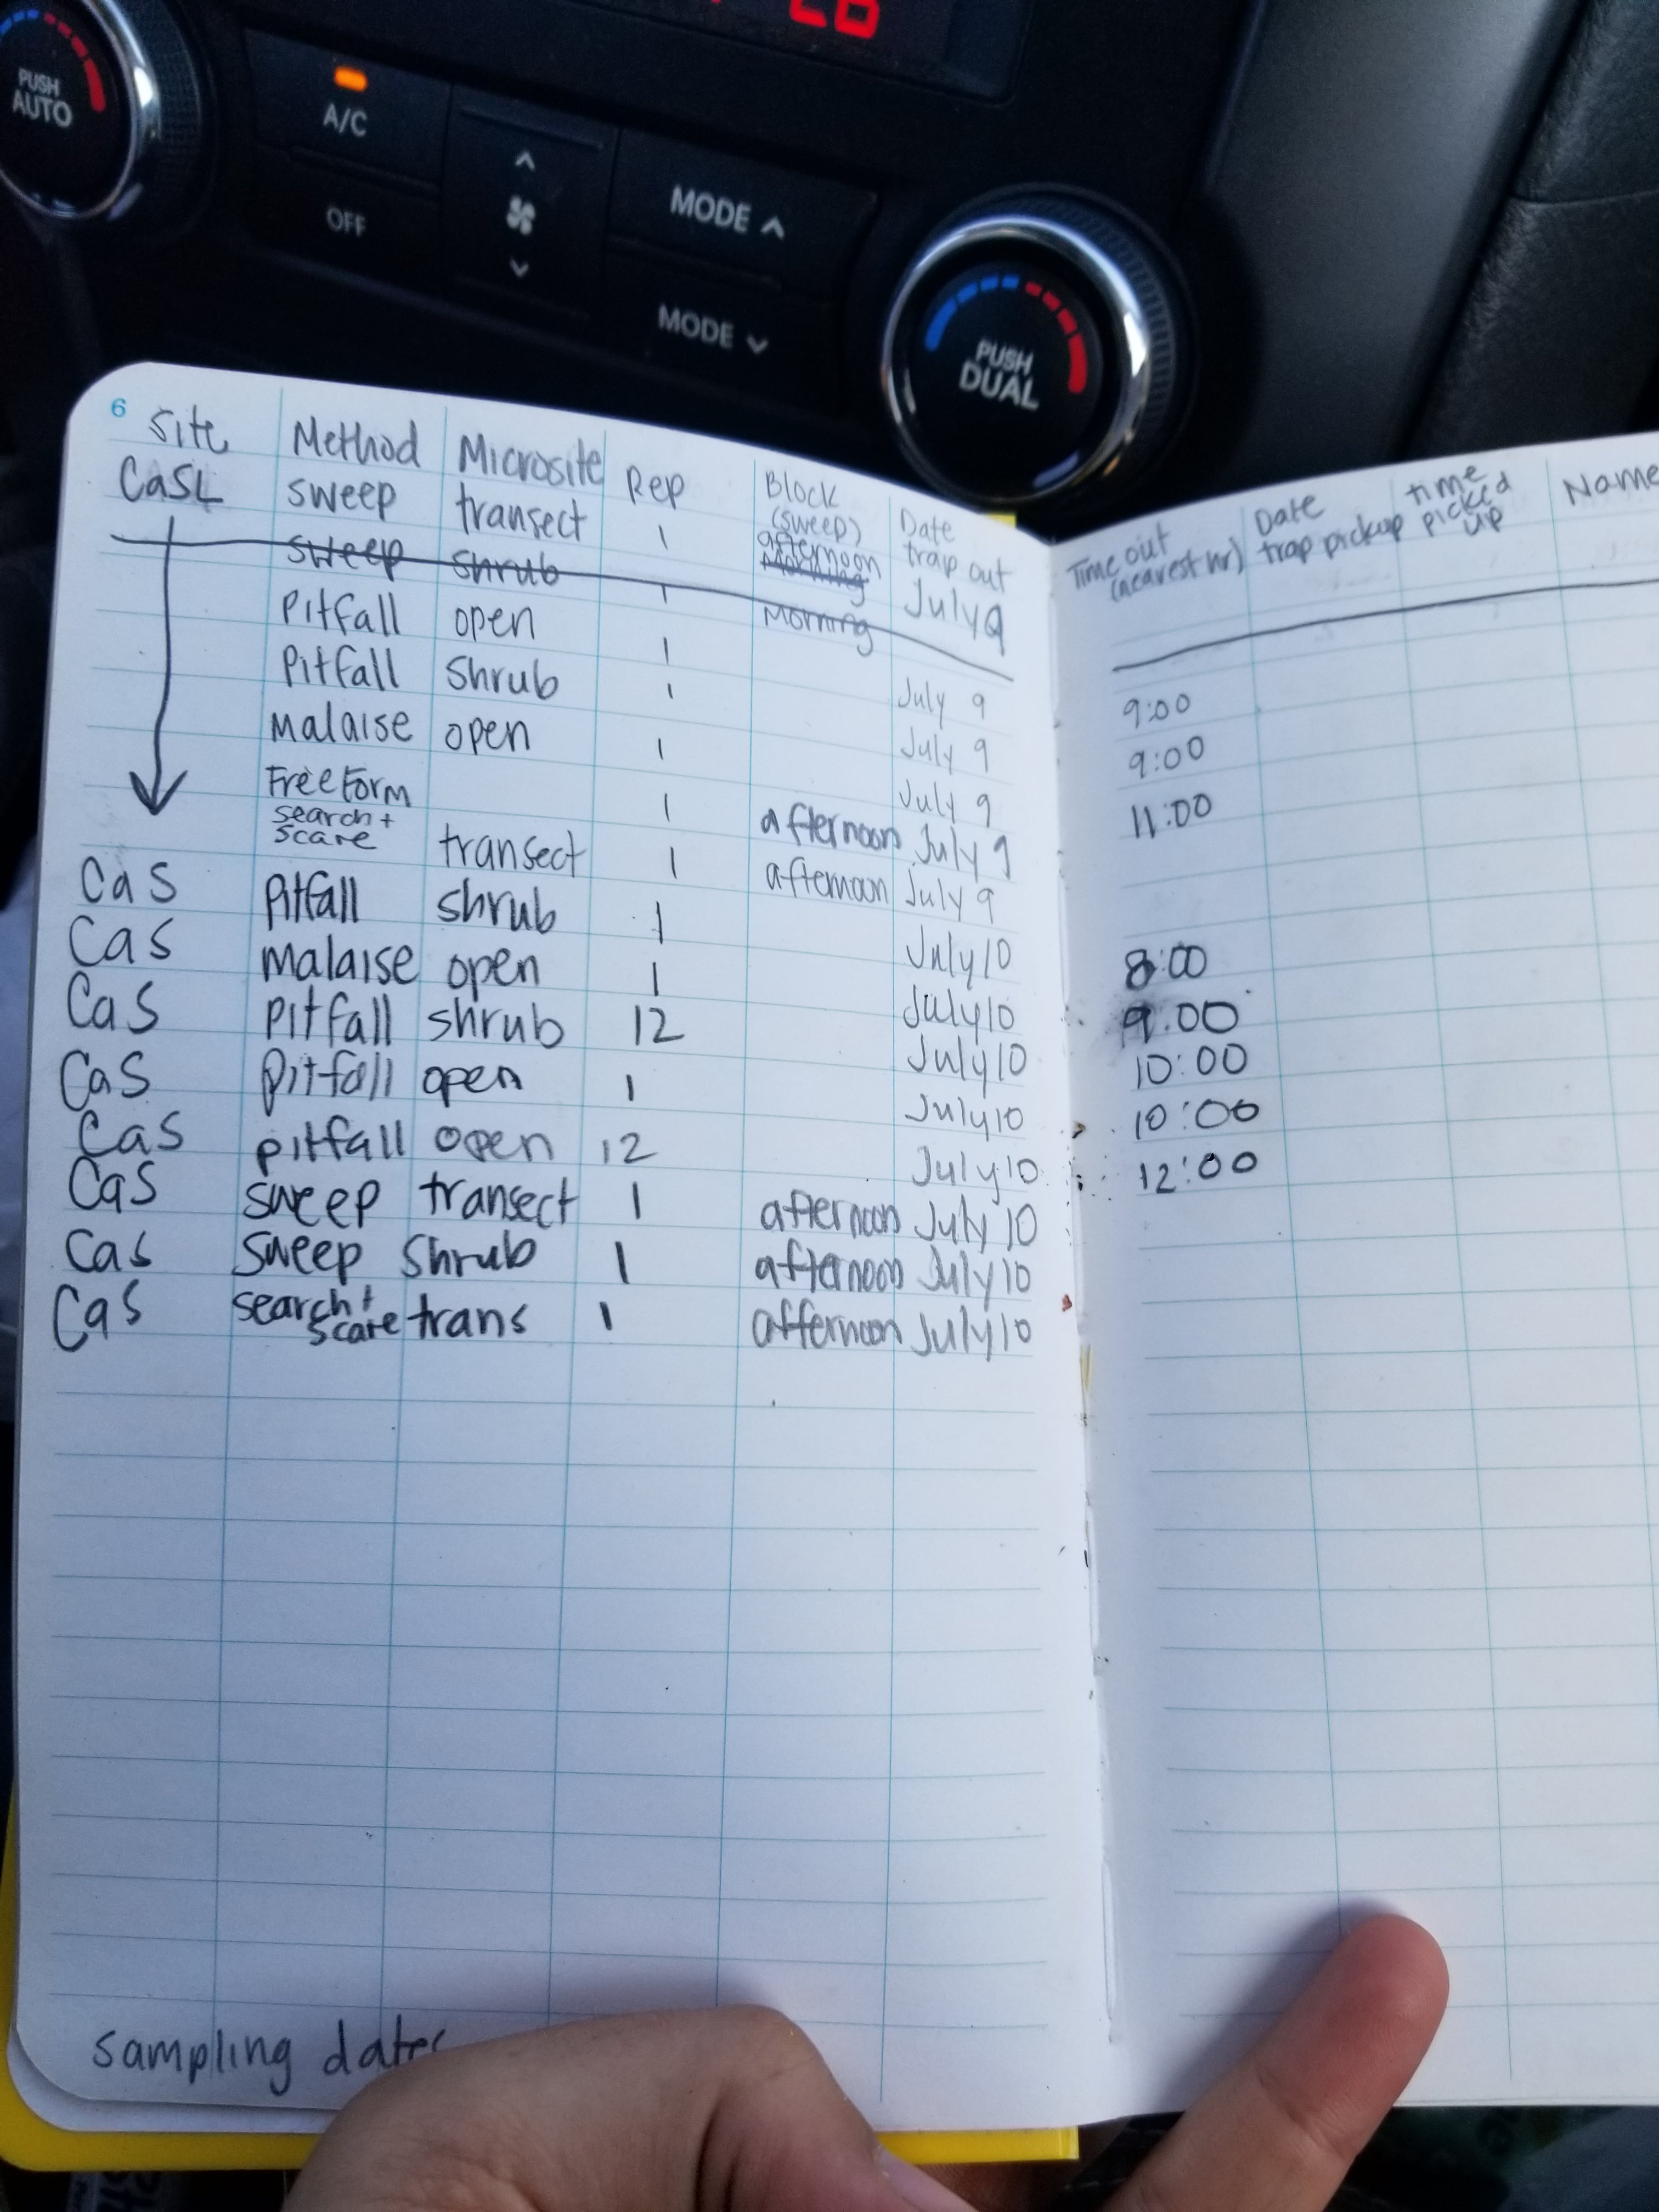 26
PUSH
AUTO
A/C
OFF
MODE
MODE
PUSH
DUAL
6
Site Method Microsite Rep Block (sweep) Date trap out Time out (nearest hr) Date trap pickup time picked up Name
CaSL sweep transect 1 afternoon Morning July 9
sweep shrub 1 Morning
Pitfall open 1 July 9 9:00
Pitfall shrub 1 July 9 9:00
Malaise open 1 July 9 11:00
Freeform 1 afternoon July 9
search + scare transect 1 afternoon July 9
CaS Pitfall shrub 1 July 10 8:00
CaS malaise open 1 July 10 9:00
CaS Pitfall shrub 12 July 10 10:00
CaS Pitfall open 1 July 10 10:00
CaS pitfall open 12 July 10 12:00
CaS sweep transect 1 afternoon July 10
CaS sweep shrub 1 afternoon July 10
CaS search + scare trans 1 afternoon July 10
sampling dates